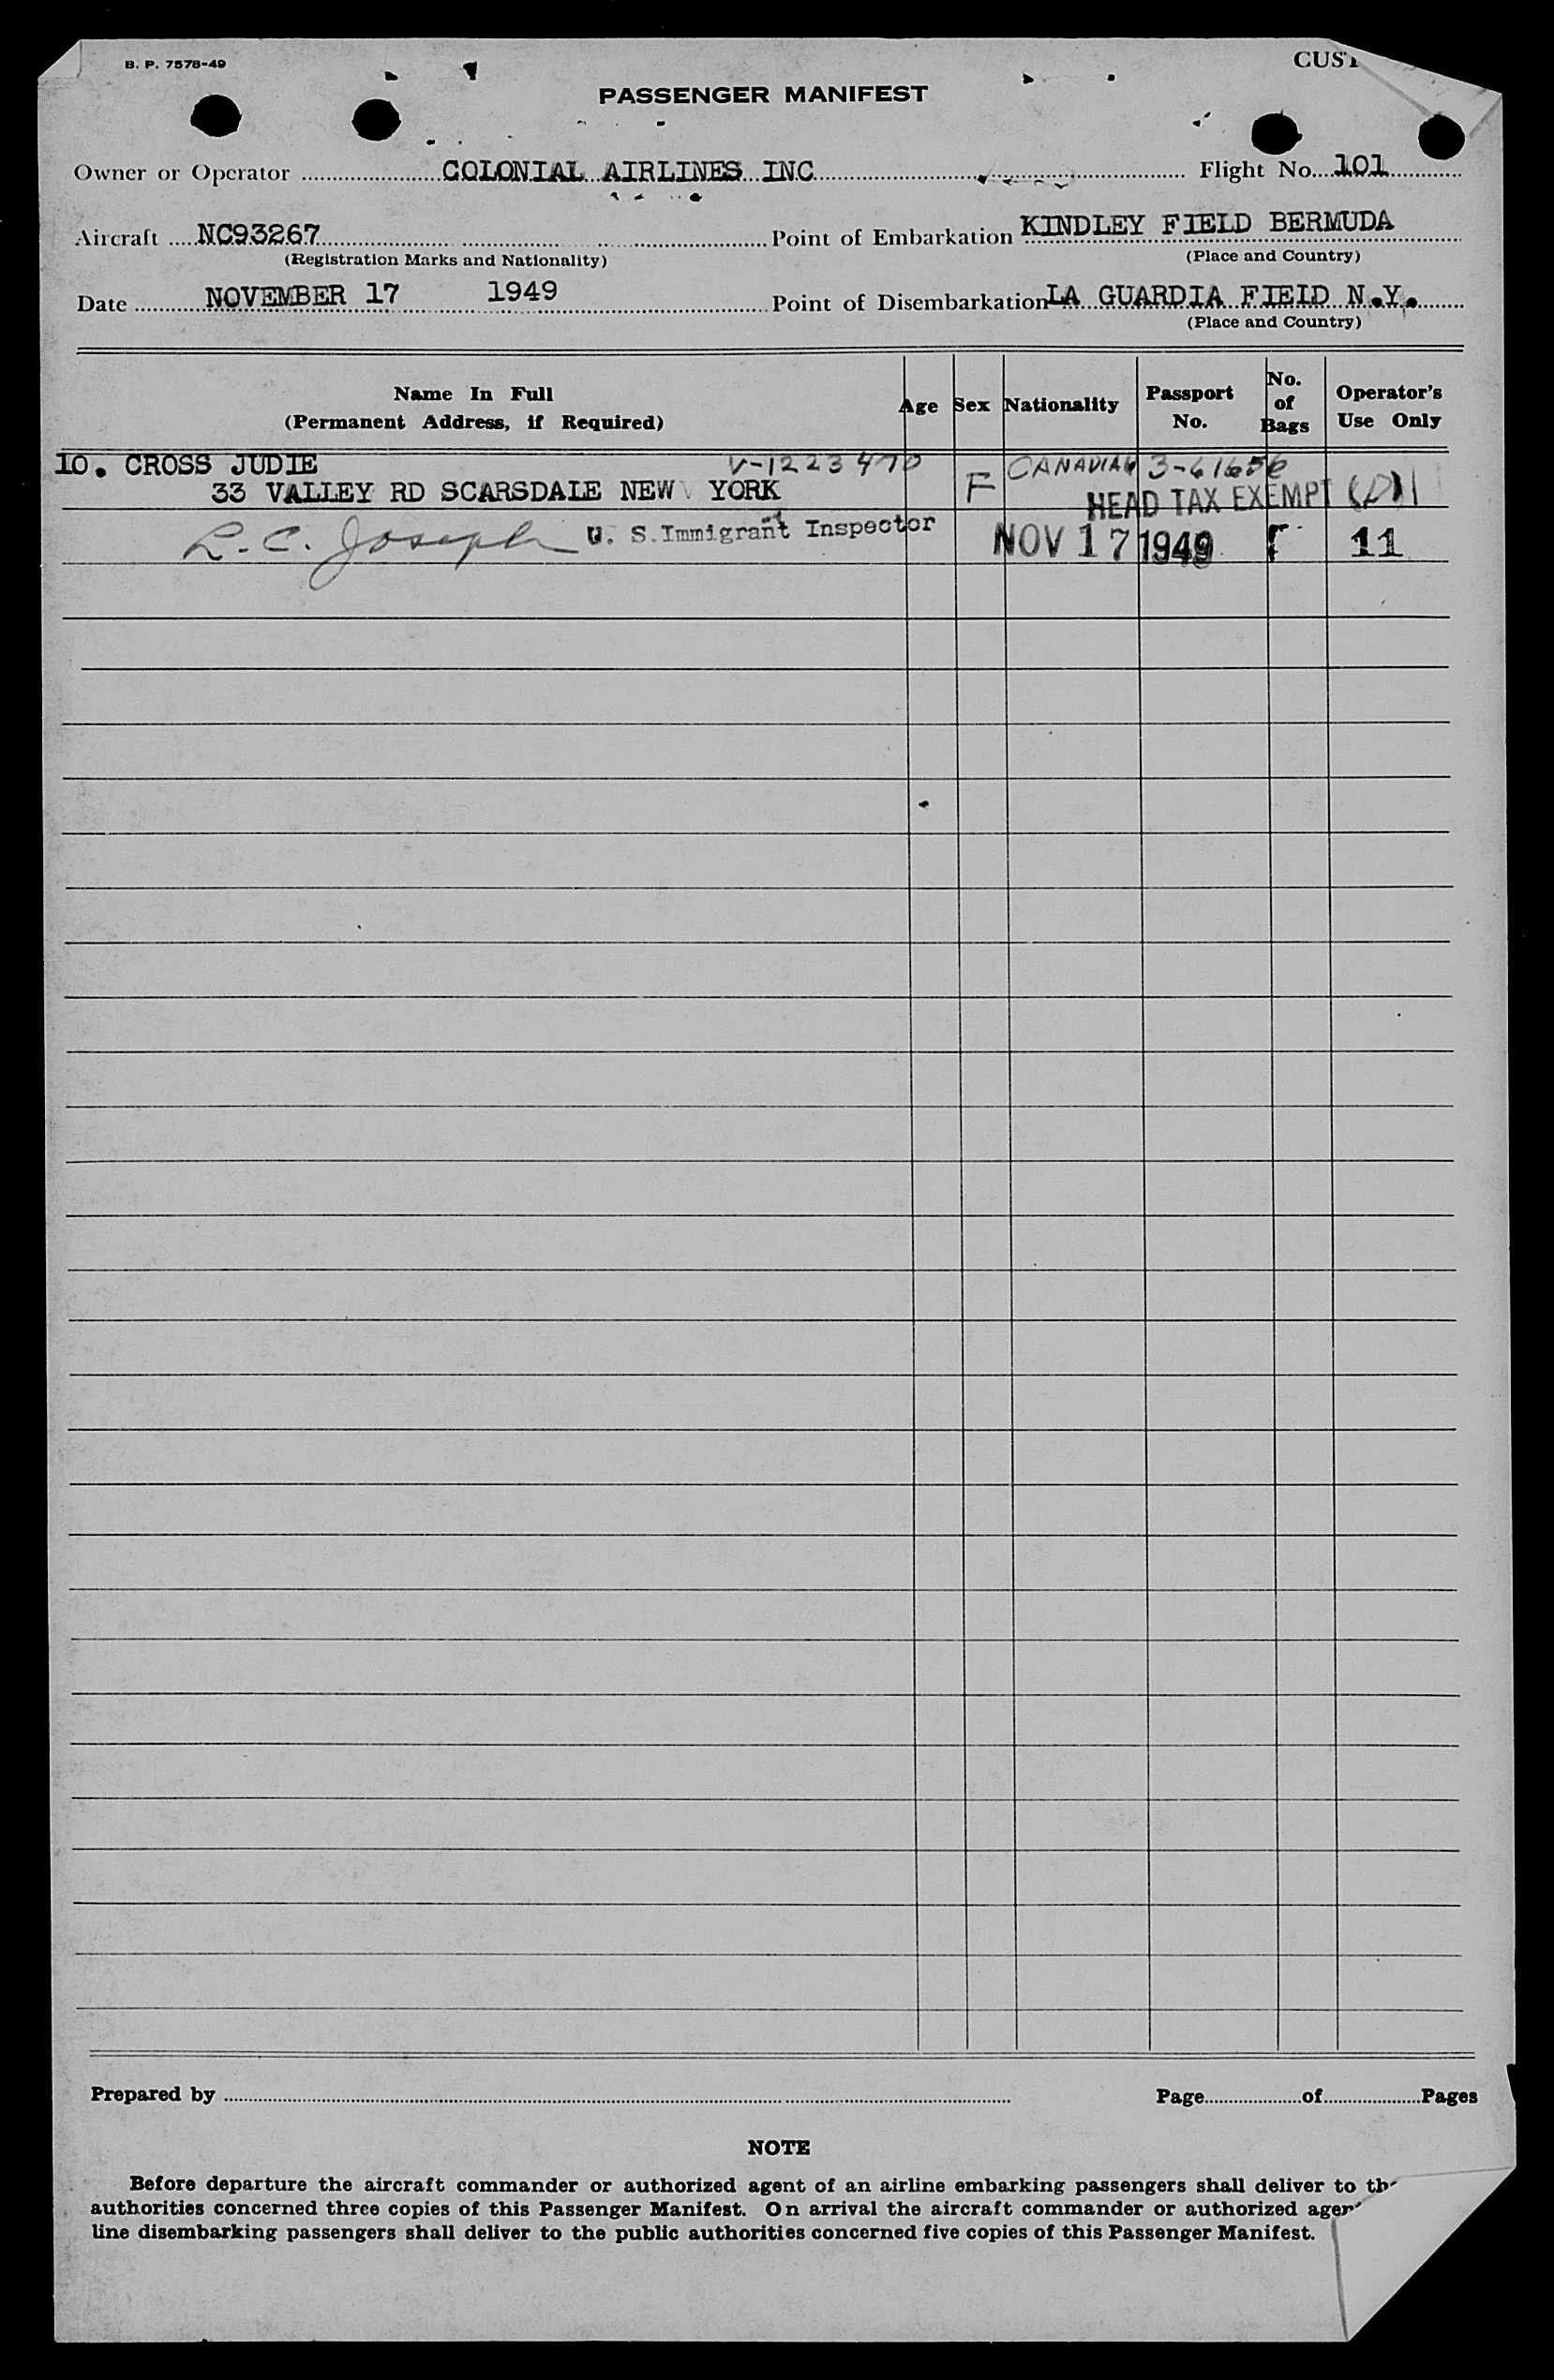 B. P. 7578-49
PASSENGER MANIFEST
Owner or Operator COLONIAL AIRLINES INC Flight No. 101
Aircraft NC93267 Point of Embarkation KINDLEY FIELD BERMUDA
(Registration Marks and Nationality) (Place and Country)
Date NOVEMBER 17 1949 Point of Disembarkation LA GUARDIA FIELD N.Y.
(Place and Country)
Name In Full Age Sex Nationality Passport No. of Operator's
(Permanent Address, if Required) No. Bags Use Only
10. CROSS JUDIE V-1223470 CANADIAN
33 VALLEY RD SCARSDALE NEW YORK F HEAD TAX EXEMPT
R. C. Joseph U. S. Immigrant Inspector NOV 17 1949 11
Prepared by Page of Pages
NOTE
Before departure the aircraft commander or authorized agent of an airline embarking passengers shall deliver to
authorities concerned three copies of this Passenger Manifest. On arrival the aircraft commander or authorized
line disembarking passengers shall deliver to the public authorities concerned five copies of this Passenger Manifest.